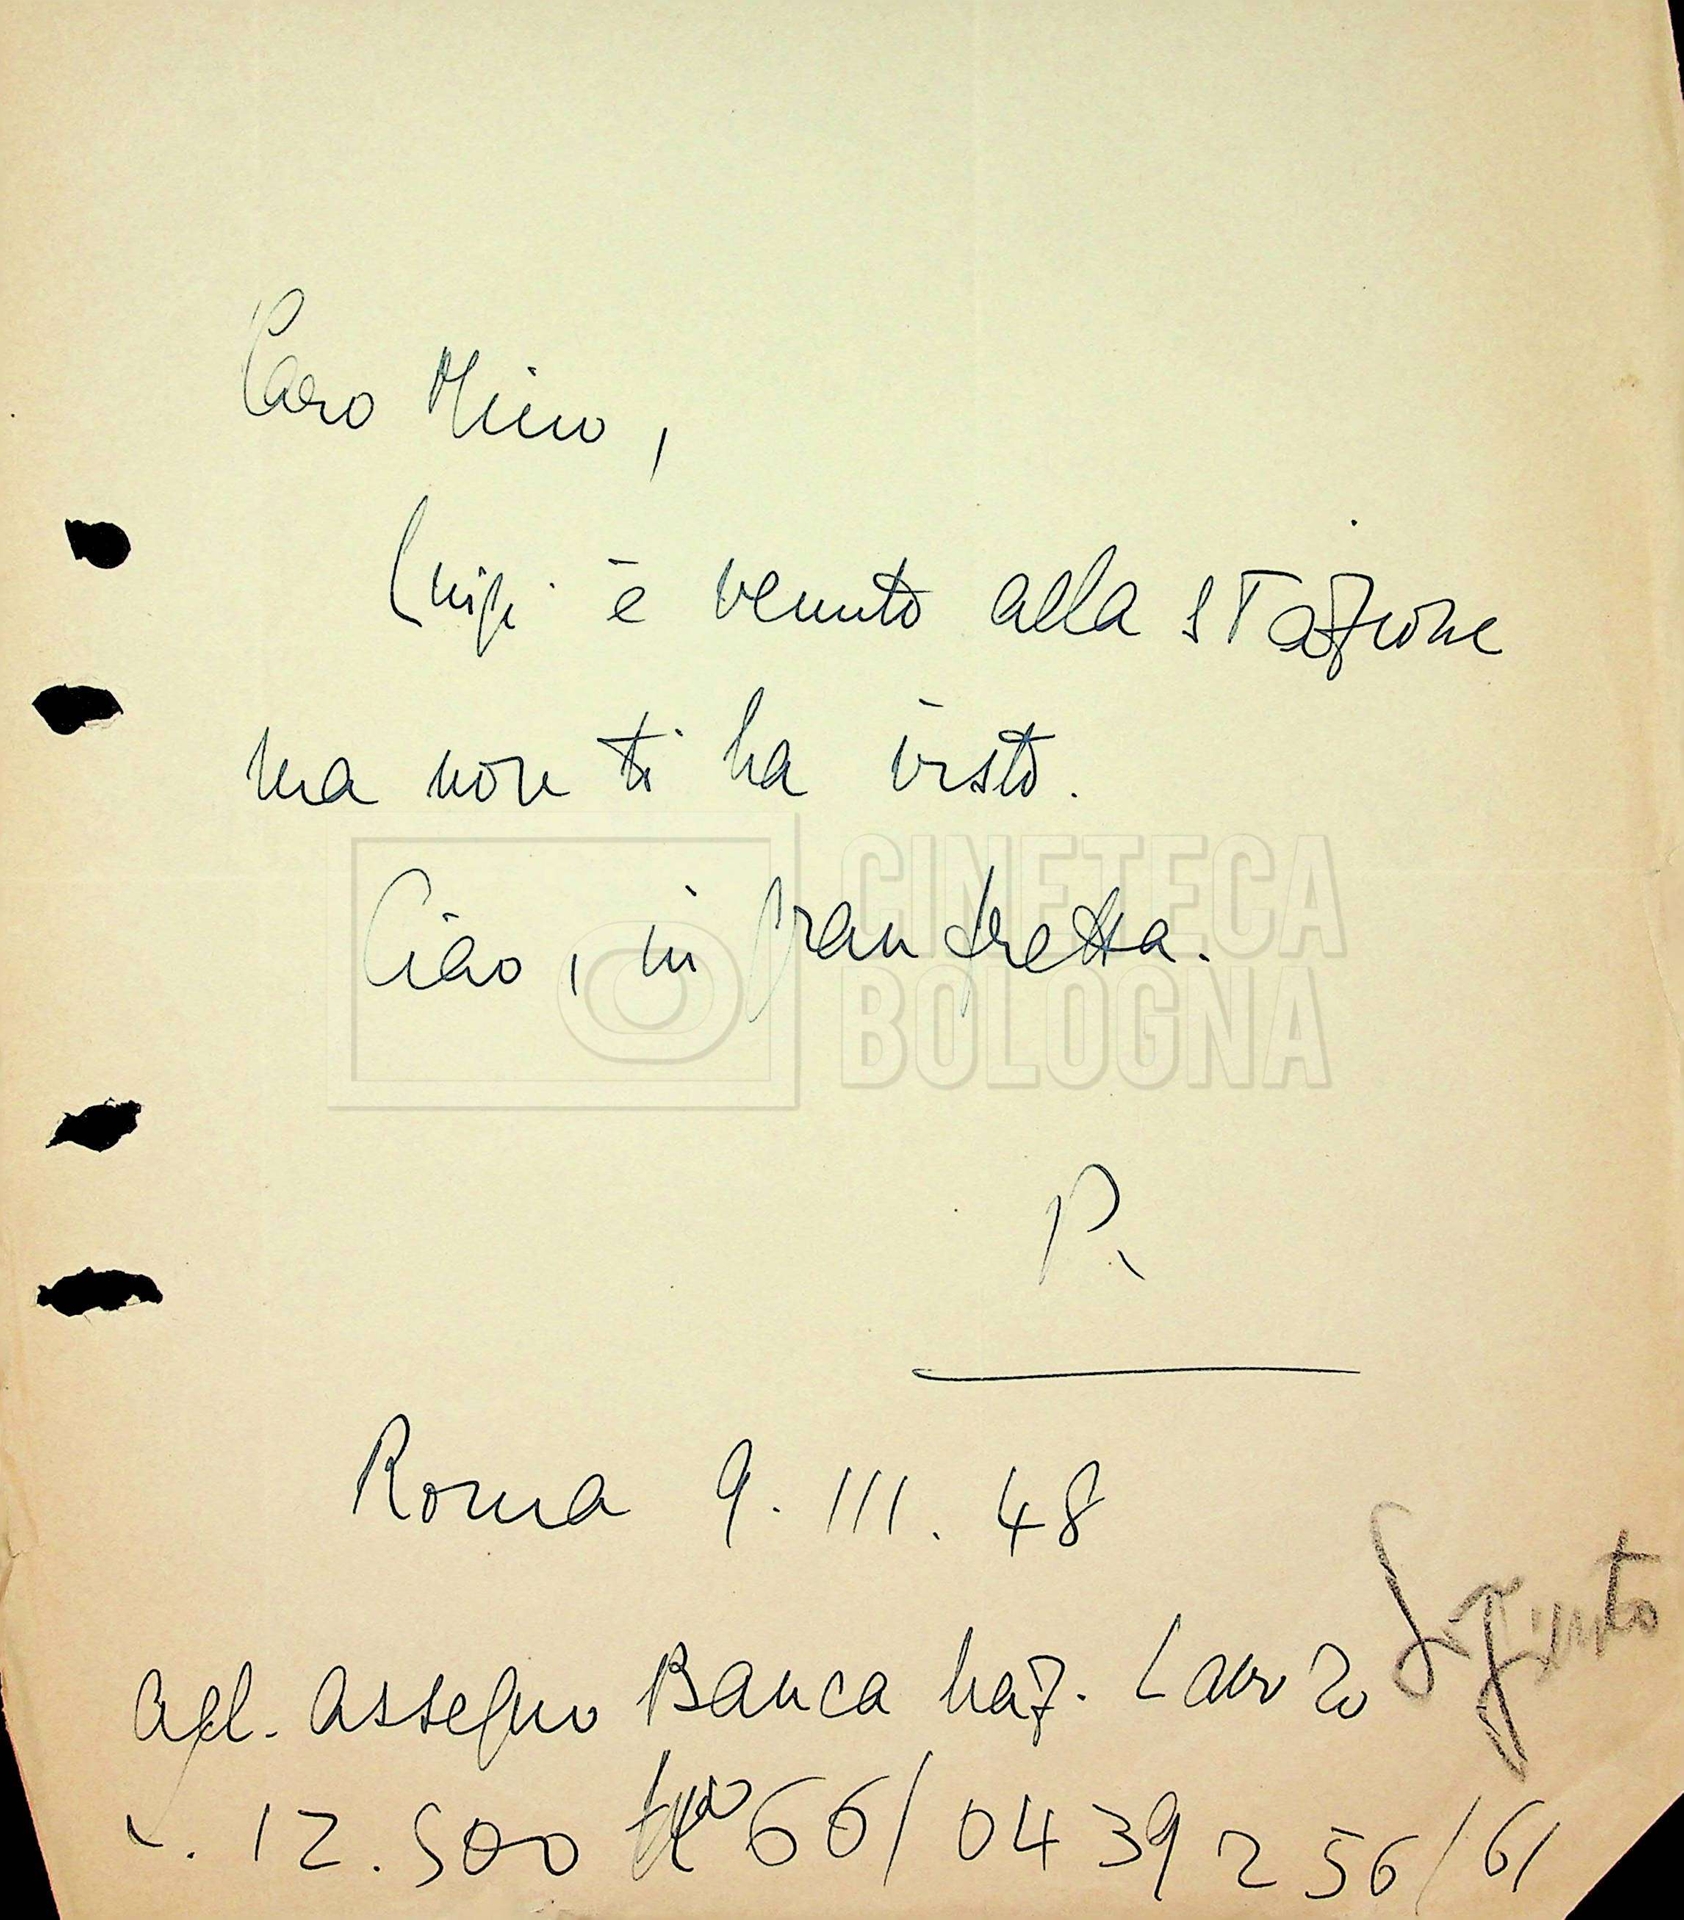 Caro Mino,
Luigi è venuto alla stazione
ma non ti ha visto.
Ciao, in gran fretta.
CINETECA
BOLOGNA
P.
Roma 9.III.48
All. assegno Banca Naz. Lavoro
L. 12.500 No 66/0439256/61